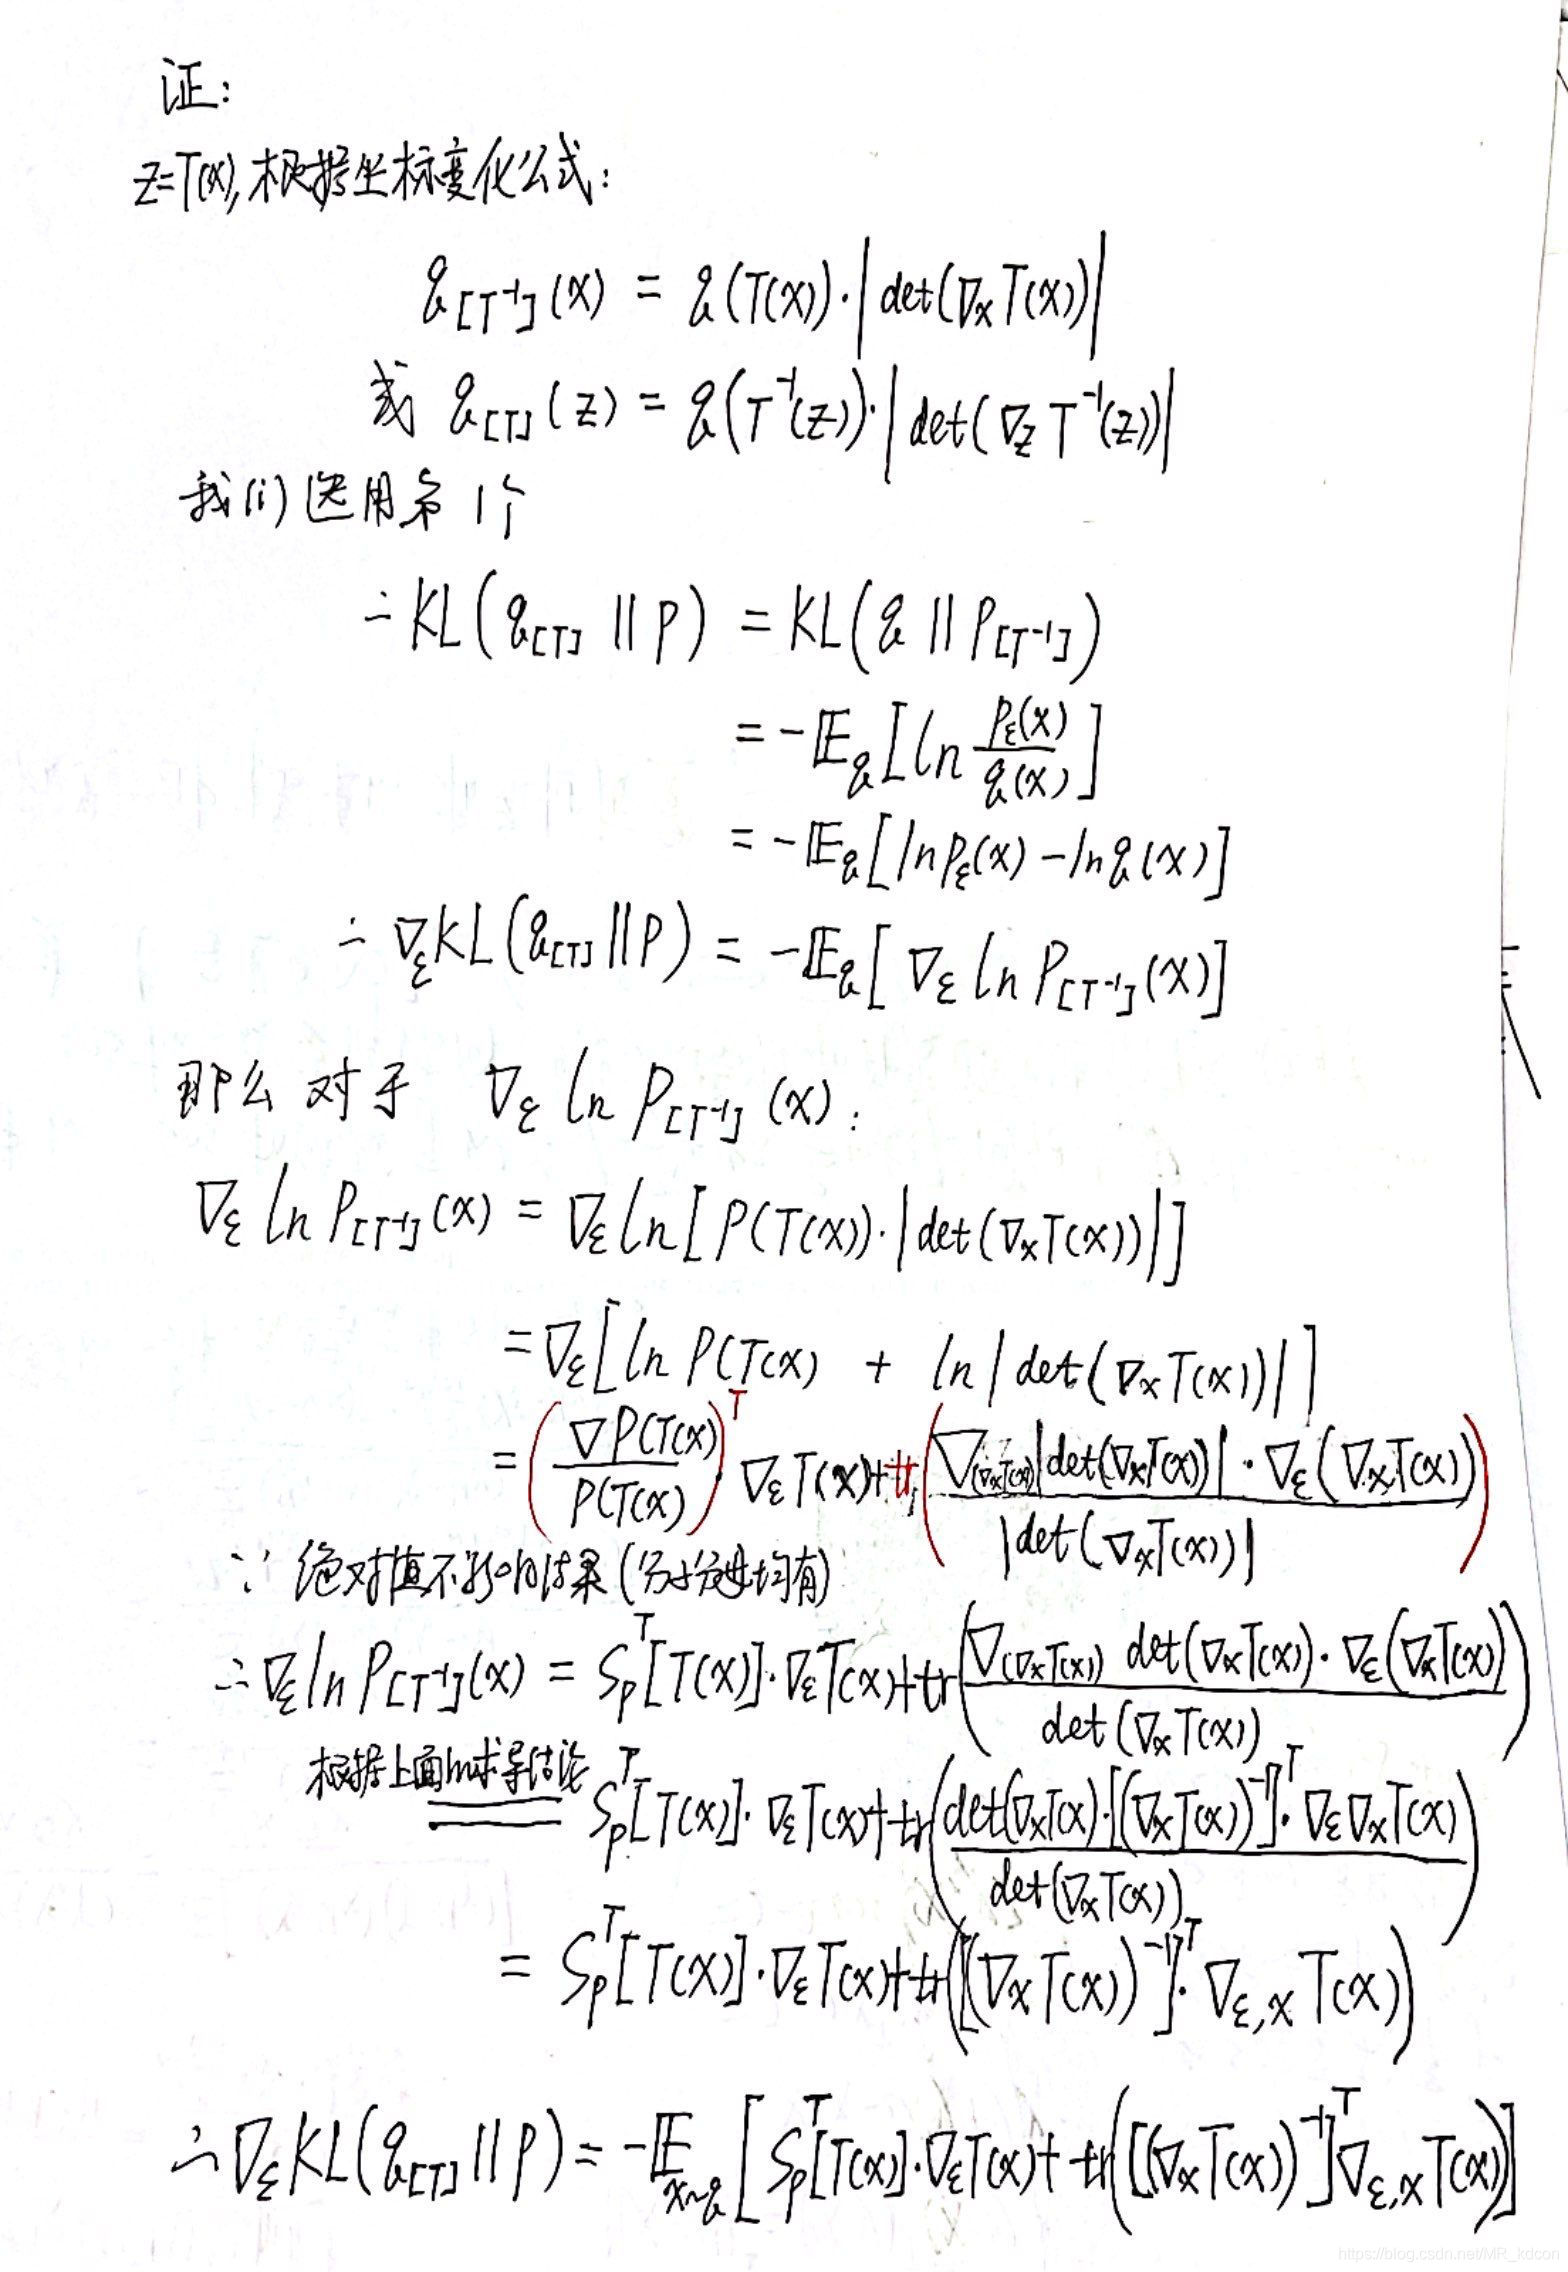 证:
z=T(x), 根据坐标变化公式:
q[T⁻¹](x) = q(T(x))·|det(∇ₓT(x))|
或 q[T](z) = q(T⁻¹(z))·|det(∇_z T⁻¹(z))|
我们选用第1个
∴ KL(q[T] || p) = KL(q || p[T⁻¹])
= -𝔼_q[ln p_ε(x)/q(x)]
= -𝔼_q[ln p_ε(x) - ln q(x)]
∴ ∇_ε KL(q[T] || p) = -𝔼_q[∇_ε ln p[T⁻¹](x)]
那么对于 ∇_ε ln p[T⁻¹](x):
∇_ε ln p[T⁻¹](x) = ∇_ε ln[p(T(x))·|det(∇ₓT(x))|]
= ∇_ε[ln p(T(x) + ln|det(∇ₓT(x))|]
= (∇p(T(x)/p(T(x))ᵀ·∇_εT(x) + tr(∇_(∇ₓT(x))|det(∇ₓT(x))|·∇_ε(∇ₓT(x))/|det(∇ₓT(x))|)
∵ 绝对值不影响结果(分子分母均有)
∴ ∇_ε ln p[T⁻¹](x) = S_pᵀ[T(x)]·∇_εT(x) + tr(∇_(∇ₓT(x)) det(∇ₓT(x))·∇_ε(∇ₓT(x))/det(∇ₓT(x)))
根据上面的求导结论 = S_pᵀ[T(x)]·∇_εT(x) + tr(det(∇ₓT(x)·[(∇ₓT(x))⁻¹]ᵀ·∇_ε∇ₓT(x)/det(∇ₓT(x)))
= S_pᵀ[T(x)]·∇_εT(x) + tr([(∇ₓT(x))⁻¹]ᵀ·∇_ε,ₓT(x))
∴ ∇_ε KL(q[T] || p) = -𝔼_x~q[S_pᵀ[T(x)]·∇_εT(x) + tr([(∇ₓT(x))⁻¹]ᵀ∇_ε,ₓT(x))]
https://blog.csdn.net/MR_kdcon